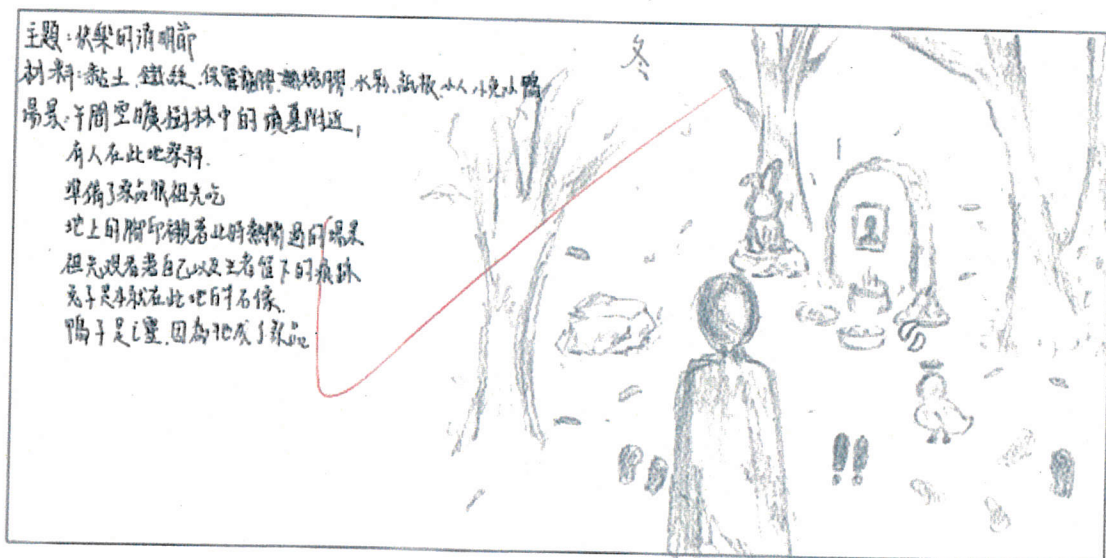 主題:快樂的清明節
材料:黏土、鐵絲、保麗龍膠、熱熔膠、水彩、紙板、小人、小兔、小鴨
場景:午間空曠樹林中的墳墓附近,
有人在此地祭拜.
準備了祭品很祖先吃
地上的腳印襯著此時熱鬧過的場景
祖先观看著自己以及生者留下的痕跡
兔子是本就在此地的石像.
鴨子是亡靈.因為他成了祭品。
冬